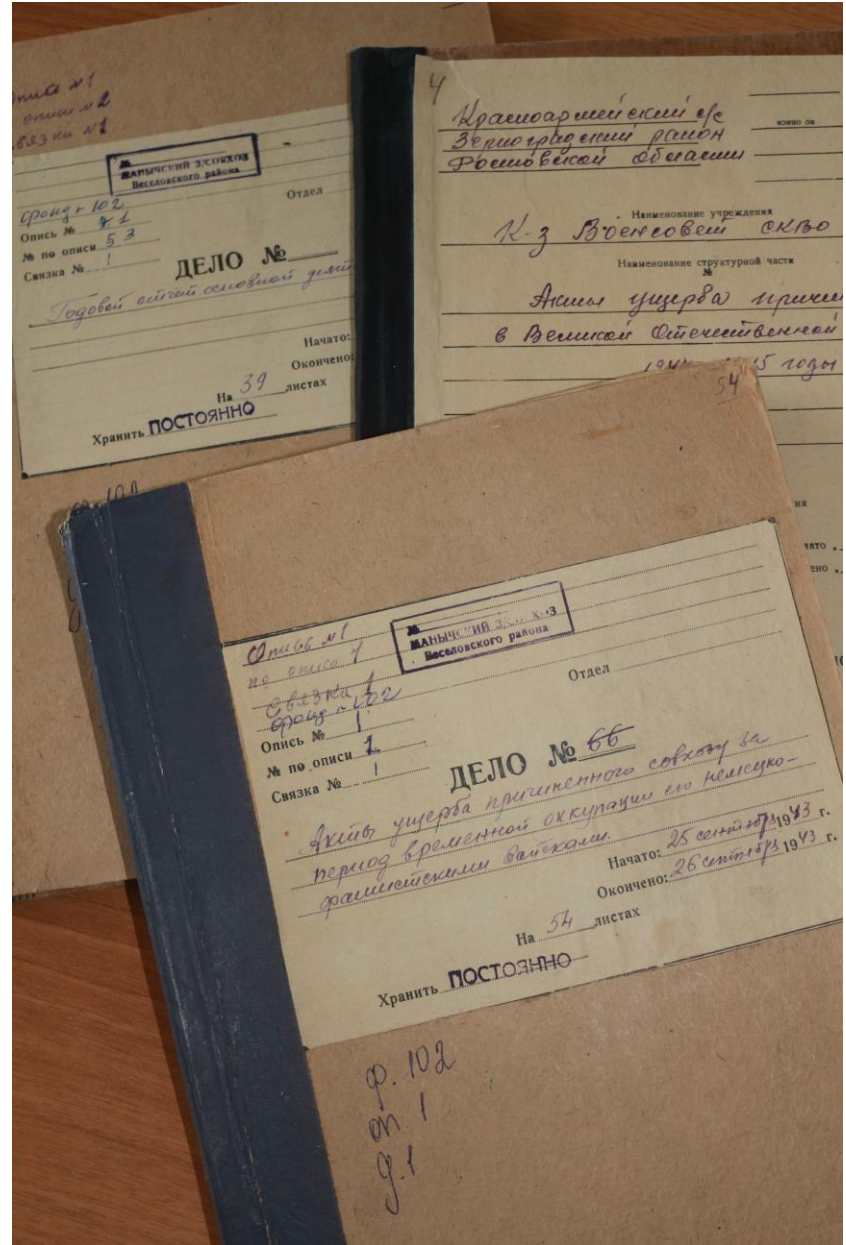 Опись №1
опись №2
связка №1
МАНЫЧСКИЙ З/СОВХОЗ
Веселовского района
фонд-102
Отдел
Опись № 1
№ по описи 53
Связка № 1
ДЕЛО №
Годовой отчет основной деят
Начато:
Окончено:
На 39 листах
Хранить ПОСТОЯННО
4
Красноармейский с/с
Зерноградский район
Ростовской области
Наименование учреждения
К-з Военсовет СКВО
Наименование структурной части
№
Акты ущерба причин
в Великой Отечественной
5 годы
54
Опись №1
по описи 1
связка 1
фонд-102
№
МАНЫЧСКИЙ З/СОВХОЗ
Веселовского района
Отдел
Опись № 1
№ по описи 1
Связка № 1
ДЕЛО № 66
Акты ущерба причиненного совхозу за
период временной оккупации его немецко-
фашистскими войсками.
Начато: 25 сентябрь 1943 г.
Окончено: 26 сентябрь 1943 г.
На 54 листах
Хранить ПОСТОЯННО
ф. 102
оп 1
д. 1